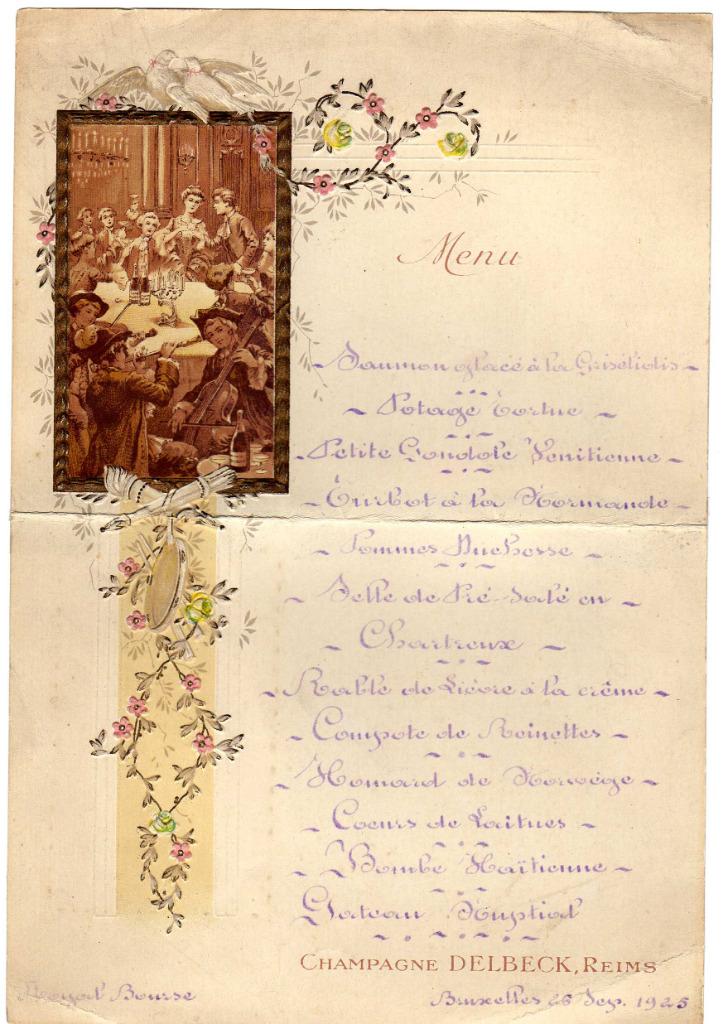 Menu
- Saumon glacé à la Grisélidis -
- Potage Tortue -
- Petite Gondole Venitienne -
- Turbot à la Normande -
- Pommes Duchesse -
- Selle de Pré-Salé en -
- Chartreuse -
- Rable de Lièvre à la crème -
- Compote de Reinettes -
- Homard de Norwège -
- Coeurs de Laitues -
- Bombe Haïtienne -
Gateau Nuptial
CHAMPAGNE DELBECK, REIMS
Bourse
Bruxelles 26 Sep. 1925